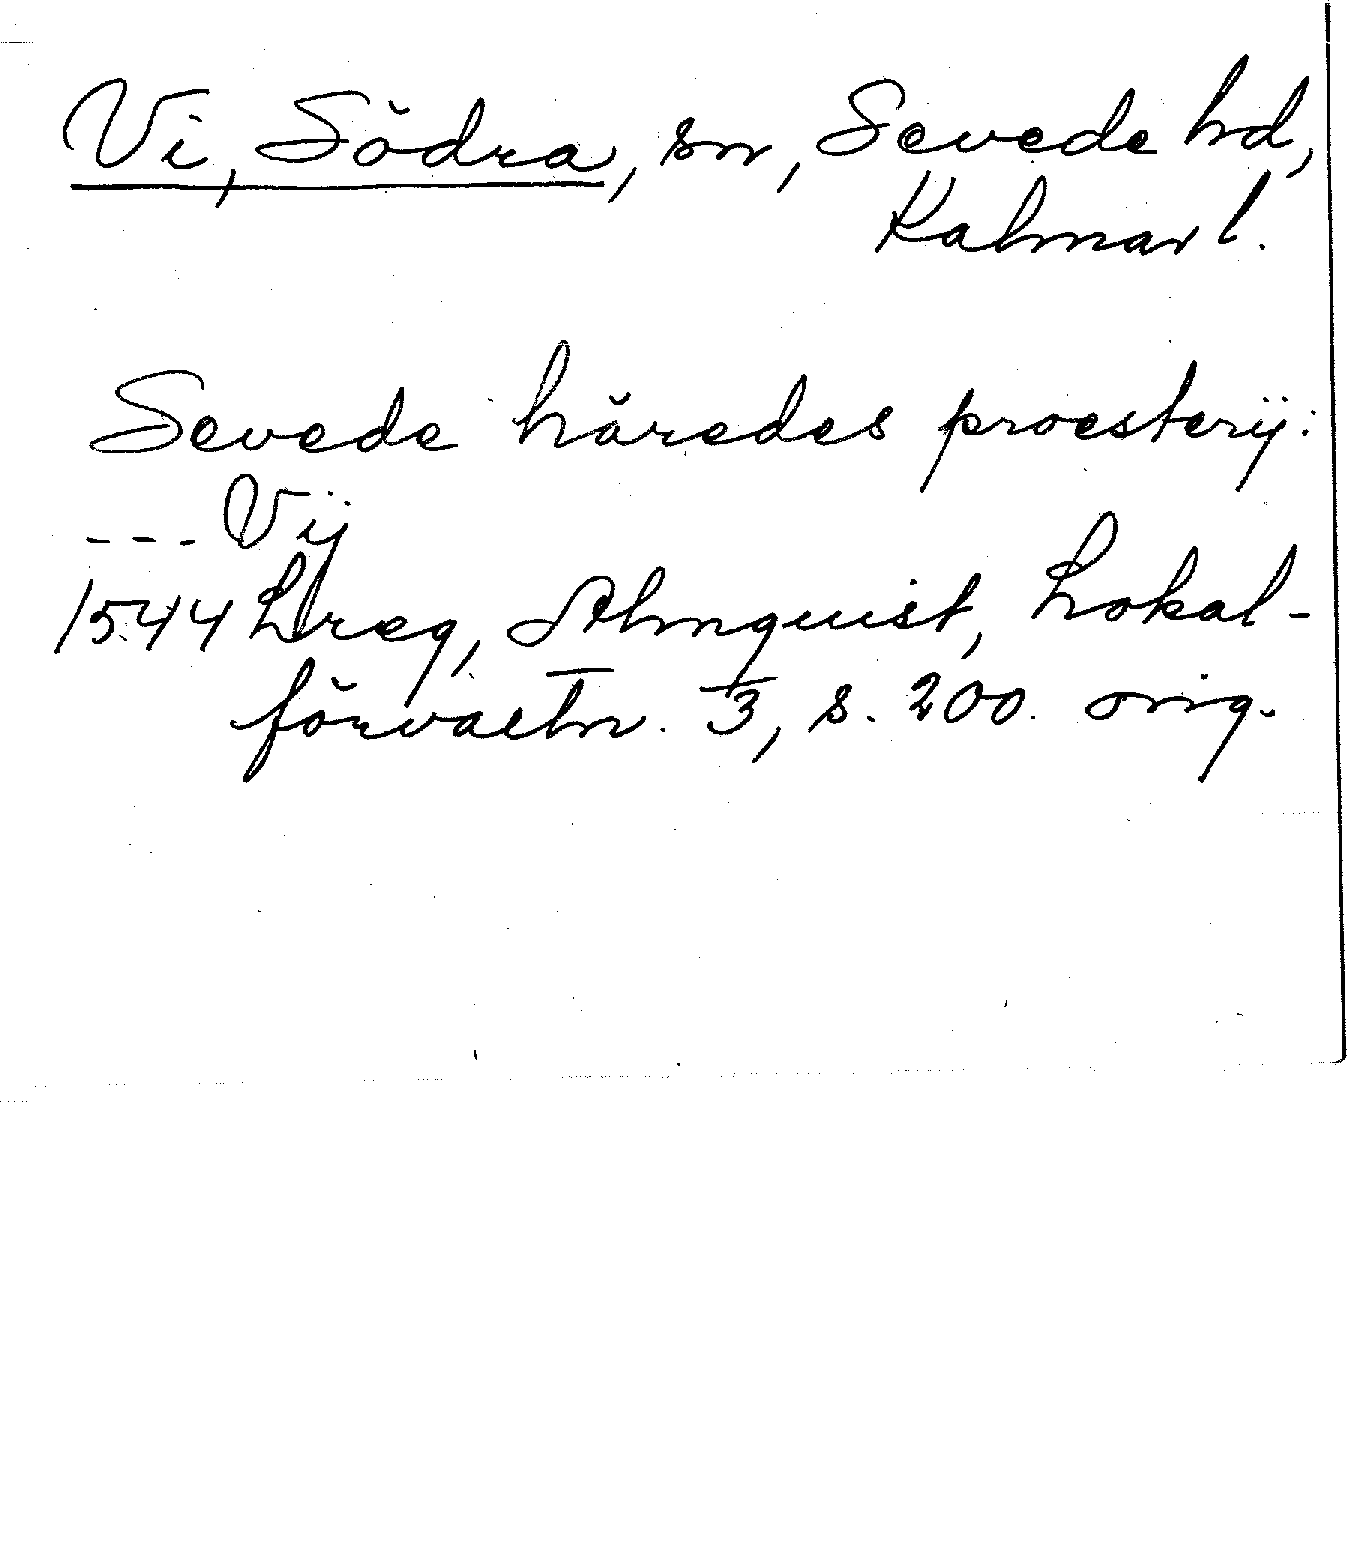 Vi, Södra, sn, Sevede hd,
Kalmar l.
Sevede häredes proesterij:
--- Vij
1544 Lreg, Almquist, Lokal-
förvaltn. 3, s. 200. orig.